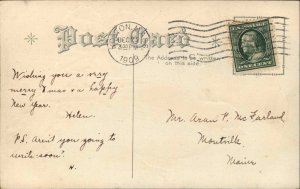 Post Card
DEC
1909
The Address to be written
on this side.
ONE CENT
Wishing you a very
merry Xmas & a happy
New Year.
Helen.
P.S. Aren't you going to
write soon?
H.
Mr. Aran P. McFarland
Montville
Maine